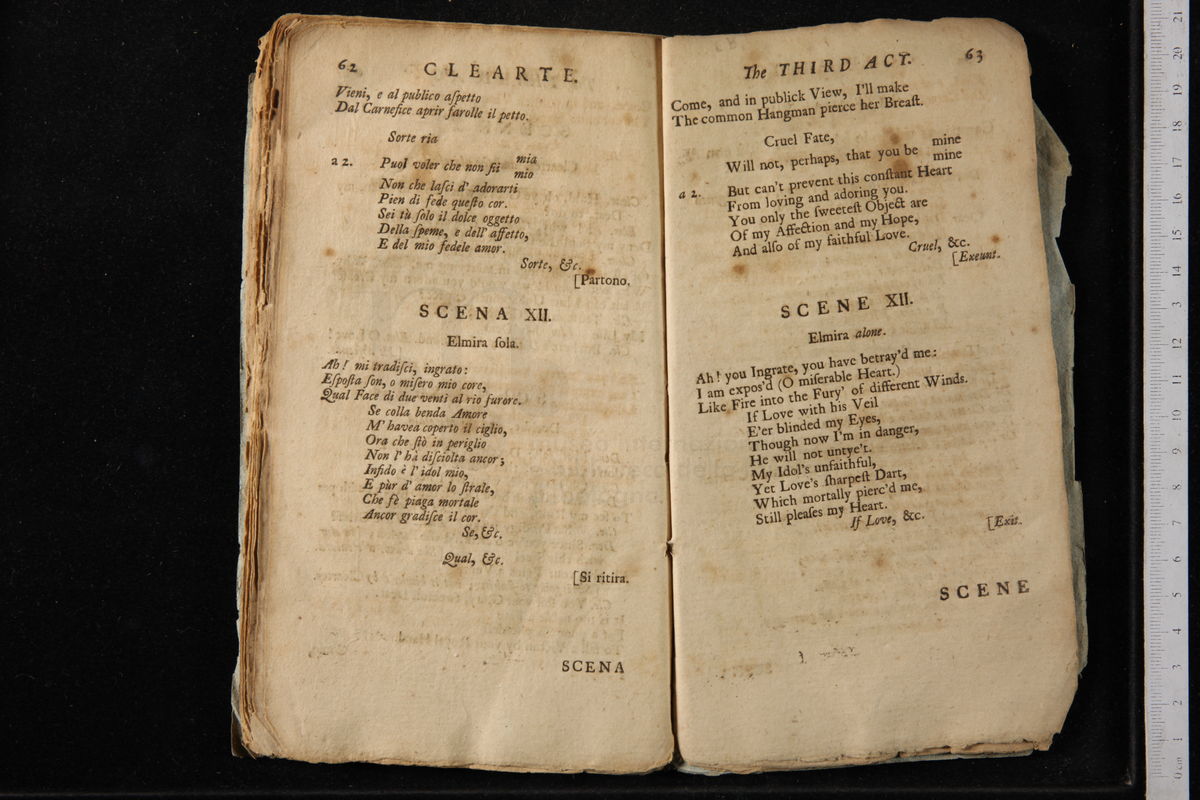 62
CLEARTE.
Vieni, e al publico aſpetto
Dal Carnefice aprir farolle il petto.
Sorte ria
a 2. Puol voler che non ſii mia
mio
Non che laſci d' adorarti
Pien di fede queſto cor.
Sei tù ſolo il dolce oggetto
Della ſpeme, e dell' affetto,
E del mio fedele amor.
Sorte, &c.
[Partono.
SCENA XII.
Elmira ſola.
Ah! mi tradiſci, ingrato:
Eſpoſta ſon, o miſero mio core,
Qual Face di due venti al rio furore.
Se colla benda Amore
M' havea coperto il ciglio,
Ora che ſtò in periglio
Non l' hà diſciolta ancor;
Infido è l' idol mio,
E pùr d' amor lo ſtrale,
Che fè piaga mortale
Ancor gradiſce il cor.
Se, &c.
Qual, &c.
[Si ritira.
SCENA
The THIRD ACT.
63
Come, and in publick View, I'll make
The common Hangman pierce her Breaſt.
Cruel Fate,
Will not, perhaps, that you be mine
mine
a 2. But can't prevent this conſtant Heart
From loving and adoring you.
You only the ſweeteſt Object are
Of my Affection and my Hope,
And alſo of my faithful Love.
Cruel, &c.
[Exeunt.
SCENE XII.
Elmira alone.
Ah! you Ingrate, you have betray'd me:
I am expos'd (O miſerable Heart.)
Like Fire into the Fury' of different Winds.
If Love with his Veil
E'er blinded my Eyes,
Though now I'm in danger,
He will not untye't.
My Idol's unfaithful,
Yet Love's ſharpeſt Dart,
Which mortally pierc'd me,
Still pleaſes my Heart.
If Love, &c.
[Exit.
SCENE